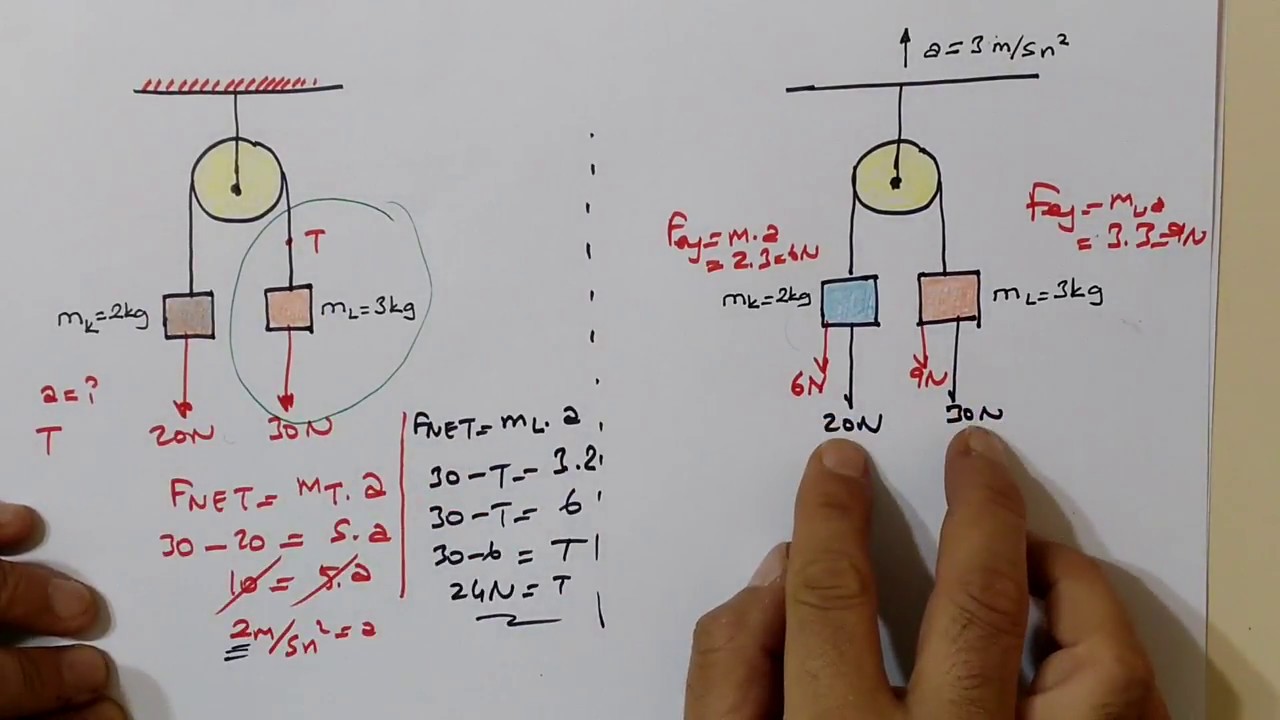 T
mK=2kg
mL=3kg
a=?
T
20N
30N
FNET= mT. a
30-20 = 5.a
10 = 5.a
2m/sn²=a
FNET= mL. a
30-T= 3.2
30-T= 6
30-6 = T
24N= T
a=3m/sn²
Fey=m.a
=2.3=6N
Fey=mL.a
=3.3=9N
mK=2kg
mL=3kg
6N
9N
20N
30N